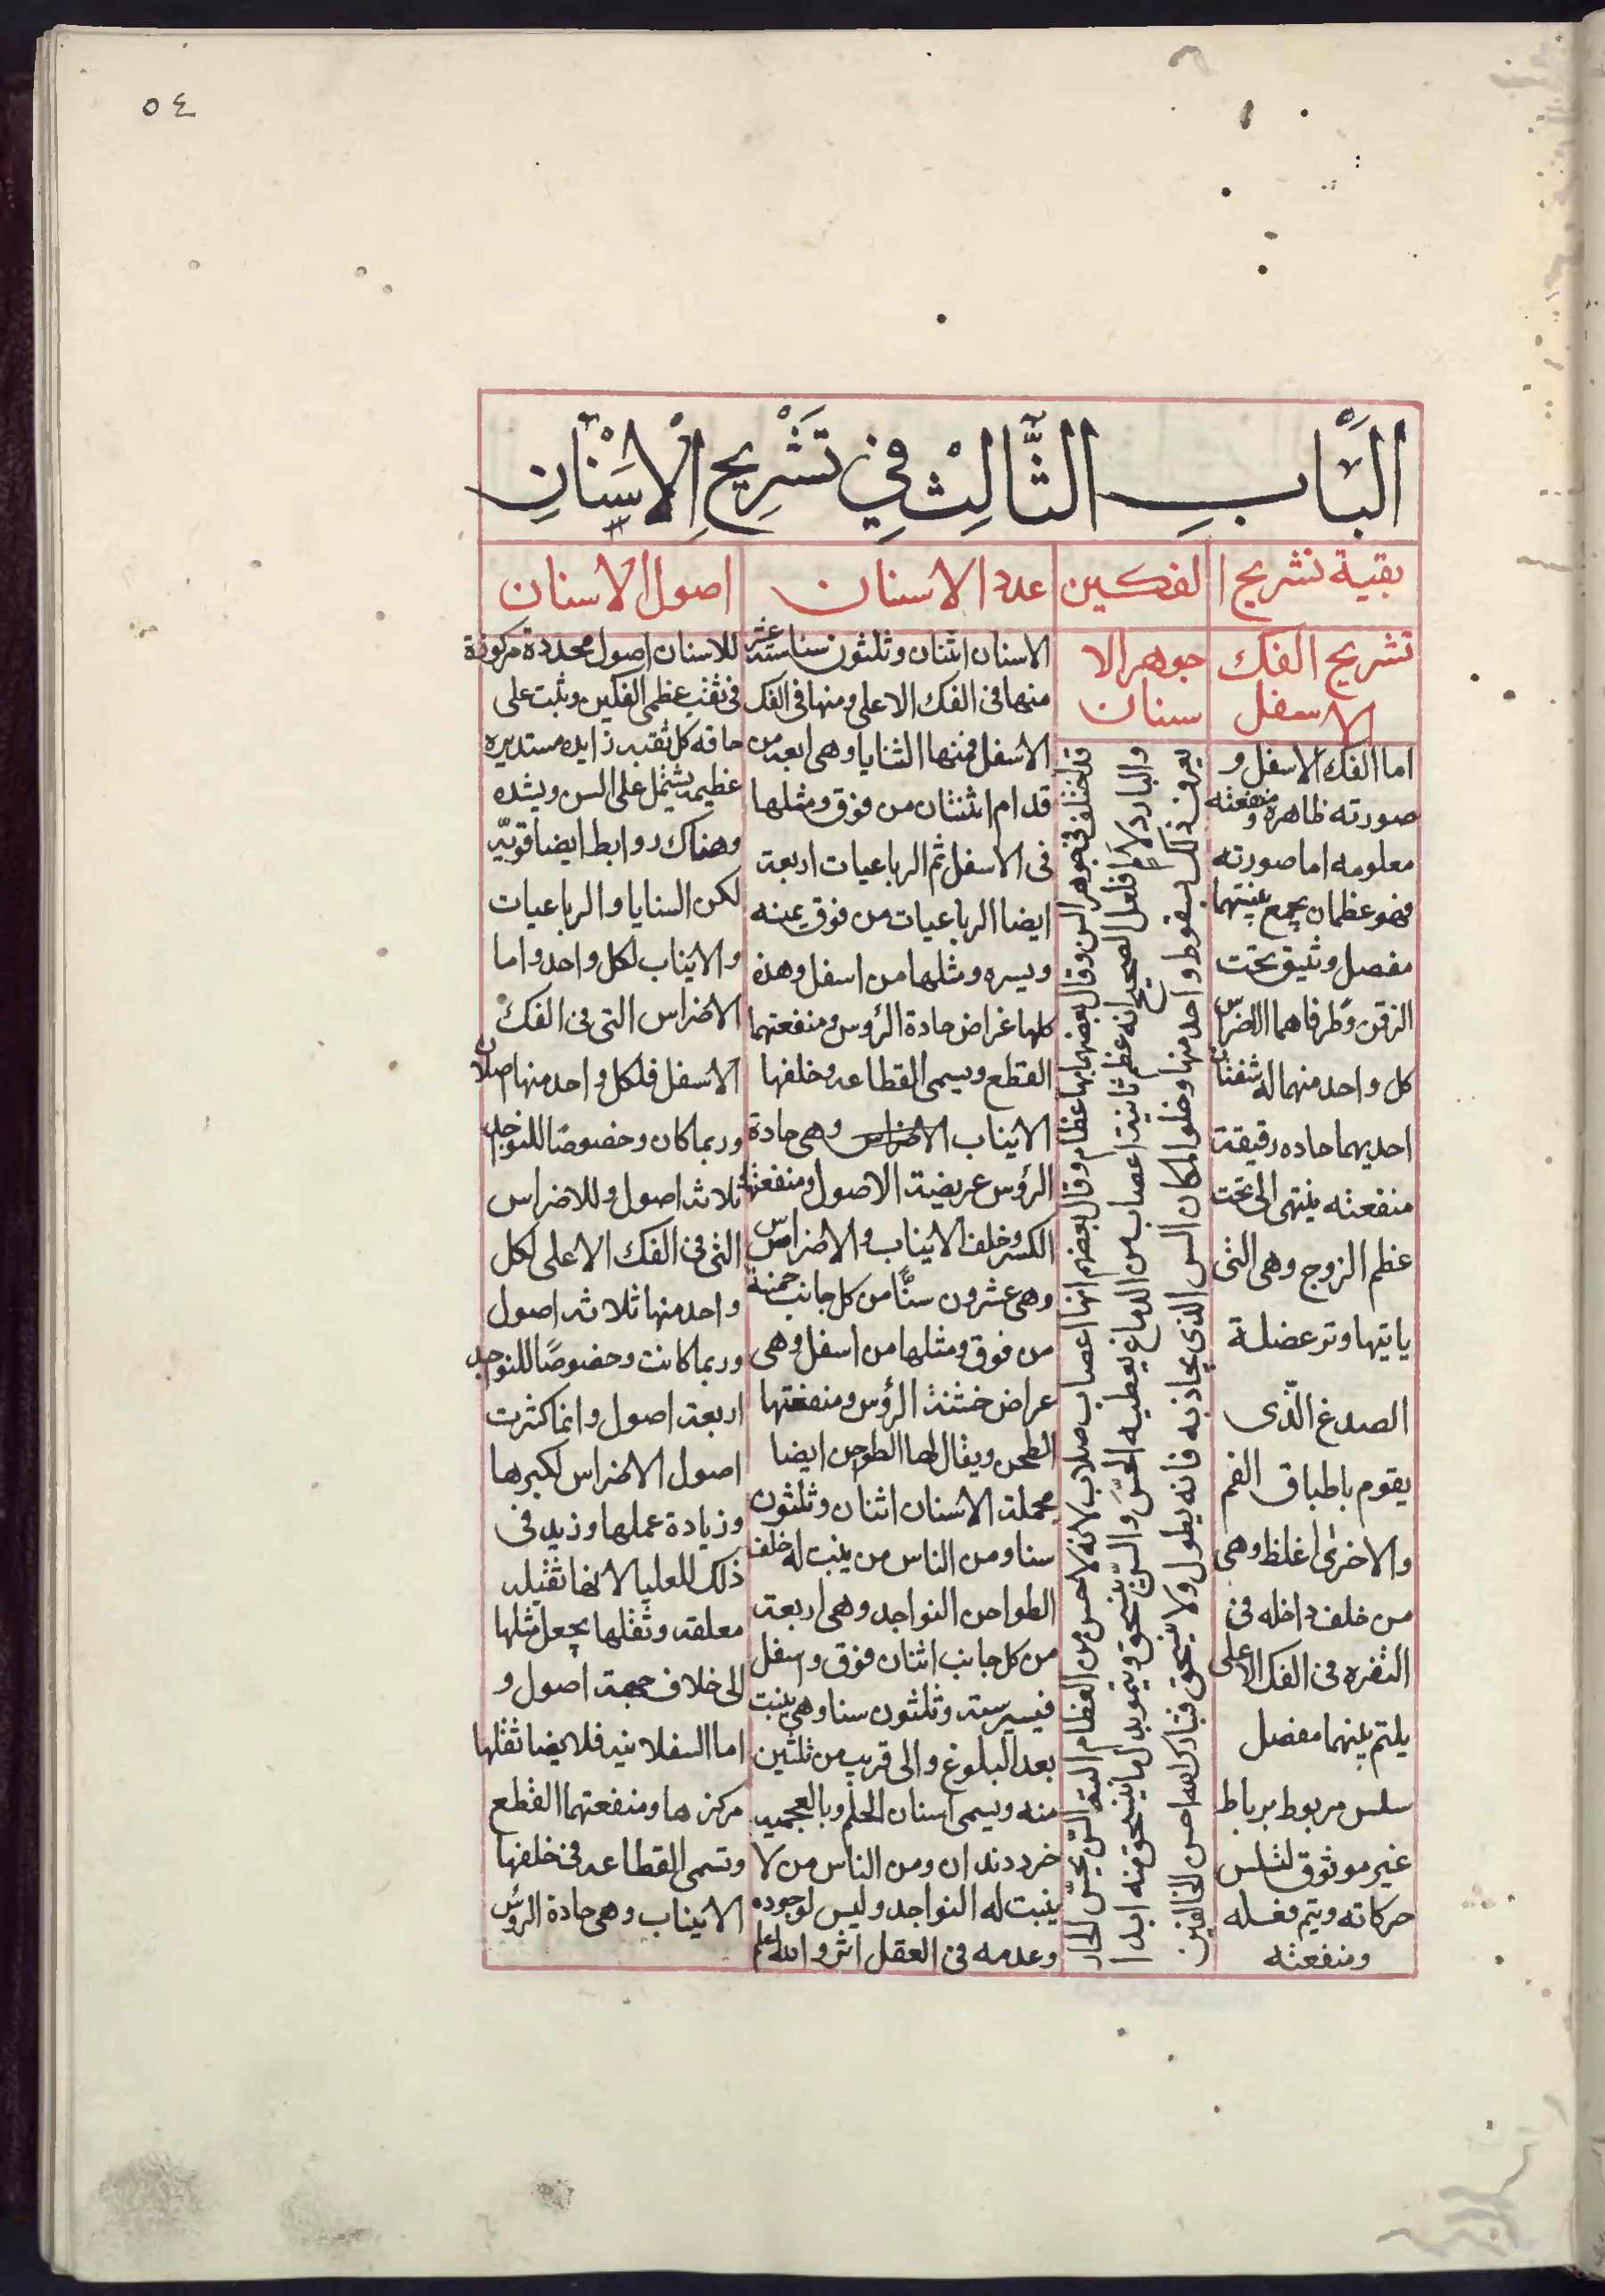 ٥٤
الباب الثالث في تشريح الاسنان
بقية تشريح الفكين
عدد الاسنان
اصول الاسنان
تشريح الفك
الاسفل
اما الفك الاسفل و
صورته ظاهره ومنفعته
معلومه اما صورته
فهو عظمان يجمع بينهما
مفصل وثيق تحت
الذقن وطرفاهما
كل واحد منهما له
احديهما حاده رقيقة
منفعته ينتهى الى تحت
عظم الزوج وهى التى
ياتيها وتر عضلة
الصدغ الّذى
يقوم باطباق الفم
والاخرى اغلظ وهى
من خلف داخله فى
النقره فى الفك الاعلى
يلتم بينهما مفصل
سلس مربوط برباط
غير موثوق لتسلس
حركاته ويتم فعله
ومنفعته
جوهر الا
سنان
قد اختلف فى جوهر السن وقال بعضهم انها عظام وقال بعضهم انها اعصاب صلاب لانه لا حس من العظام البتة التى يحسّ الحار
والبارد لا فلعل الصحيح انه عظم ثانية اعصاب من الدماغ يعطيه الحسّ والسنّ ينسحق وينمو بدل ما ينسحق منه ابدا
يعرف ذلك بسقوط واحد منها وخلوا مكان السن الذى يحاذبه فانه يطول ولا ينسحق فتبارك الله احسن الخالقين
الاسنان اثنان وثلثون سنا ستة عشر
منها فى الفك الاعلى ومنها فى الفك
الاسفل فمنها الثنايا وهى اربعه من
قدام اثنتان من فوق ومثلها
فى الاسفل ثم الرباعيات اربعة
ايضا الرباعيات من فوق يمينه
ويسره ومثلها من اسفل وهذه
كلها عراض حادة الرؤس ومنفعتهما
القطع ويسمى القطاعه وخلفها
الانياب الاضراس وهى حادة
الرؤس عريضة الاصول ومنفعتها
الكسر وخلف الانياب والاضراس
وهى عشرون سنًّا من كل جانب خمسة
من فوق ومثلها من اسفل وهى
عراض خشنة الرؤس ومنفعتها
الطحن ويقال لها الطواحن ايضا
فجملة الاسنان اثنان وثلثون
سنا ومن الناس من ينبت له خلف
الطواحن النواجد وهى اربعة
من كل جانب اثنان فوق واسفل
فيسير ستة وثلثون سنا وهى ينبت
بعد البلوغ والى قريب من ثلثين
سنه ويسمى اسنان الحلم وبالعجميه
خرد دندان ومن الناس من لا
ينبت له النواجد وليس لوجوده
وعدمه فى العقل اثر والله اعلم
للاسنان اصول محددة مركوزة
فى ثقب عظمى الفكين وينبت على
حافه كل ثقبه زايده مستديره
عظيمه يشتمل على السن ويشده
وهناك روابط ايضا قويّه
لكن السنايا والرباعيات
والانياب لكل واحد واما
الاضراس التى فى الفك
الاسفل فلكل واحد منها اصلان
وربما كان وخصوصًا للنواجد
ثلاثه اصول وللاضراس
التى فى الفك الاعلى لكل
واحد منها ثلاثه اصول
وربما كانت وخصوصًا للنواجد
اربعة اصول وانما كثرت
اصول الاضراس لكبرها
وزيادة عملها وزيد فى
ذلك للعليا لانها ثقيله
معلقه وثقلها يجعل مثلها
الى خلاف جهة اصول و
اما السفلانيه فلا يضا ثقلها
مركزها ومنفعتهما القطع
وتسمى القطاعه فى خلفها
الانياب وهى حادة الرؤس